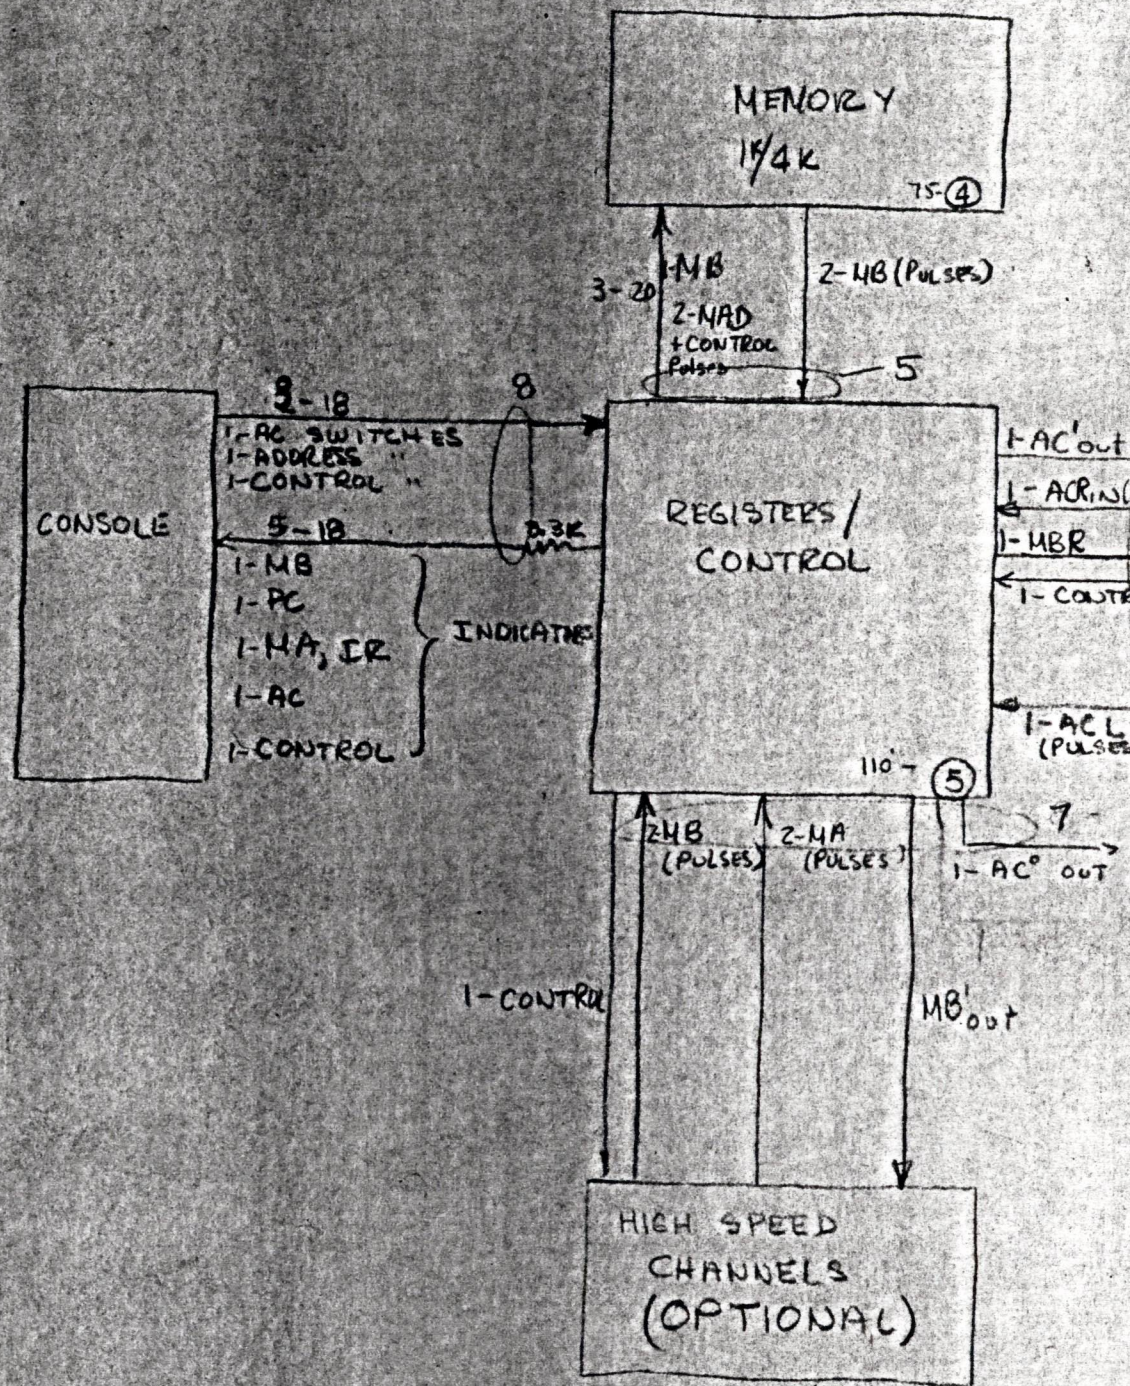 MEMORY
1K/4K
75-④
3-20
1-MB
2-MAD
+CONTROL
Pulses
2-MB (PULSES)
5
8
-18
1-AC SWITCHES
1-ADDRESS "
1-CONTROL "
CONSOLE
5-18
3.3K
1-MB
1-PC
1-MA, IR
1-AC
1-CONTROL
INDICATORS
REGISTERS/
CONTROL
110-
⑤
1-AC' out
1-ACR, IN(
1-MBR
1-CONTR
1-ACL
(PULSES
2MB
(PULSES)
2-MA
(PULSES)
7
1-AC° OUT
1-CONTROL
MB' out
HIGH SPEED
CHANNELS
(OPTIONAL)